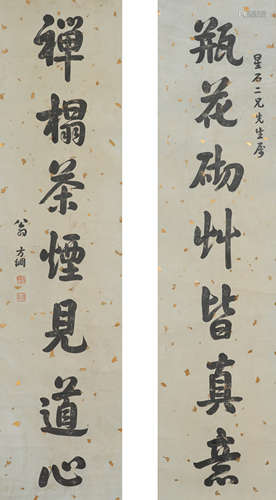 星石二兄先生屬
瓶花砌艸皆真意
禪榻茶煙見道心
翁方綱